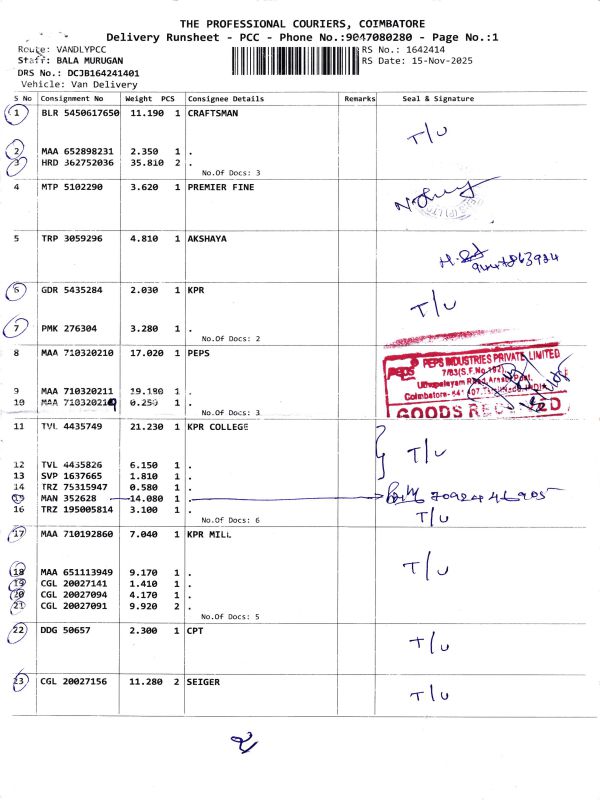 THE PROFESSIONAL COURIERS, COIMBATORE
Delivery Runsheet - PCC - Phone No.:9047080280 - Page No.:1
Route: VANDLYPCC RS No.: 1642414
Staff: BALA MURUGAN RS Date: 15-Nov-2025
DRS No.: DCJB164241401
Vehicle: Van Delivery
S No Consignment No Weight PCS Consignee Details Remarks Seal & Signature
1 BLR 5450617650 11.190 1 CRAFTSMAN
T/U
2 MAA 652898231 2.350 1 .
3 HRD 362752036 35.810 2 .
No.Of Docs: 3
4 MTP 5102290 3.620 1 PREMIER FINE
5 TRP 3059296 4.810 1 AKSHAYA
6 GDR 5435284 2.030 1 KPR
T/U
7 PMK 276304 3.280 1 .
No.Of Docs: 2
8 MAA 710320210 17.020 1 PEPS
PEPS INDUSTRIES PRIVATE LIMITED
peps 7/83(S.F.No.192)
Udhapalayam Road, Arasur Post,
Coimbatore- 641 407, INDIA
9 MAA 710320211 19.180 1 .
10 MAA 710320219 0.250 1 .
GOODS RECEIVED
No.Of Docs: 3
11 TVL 4435749 21.230 1 KPR COLLEGE
T/U
12 TVL 4435826 6.150 1 .
13 SVP 1637665 1.810 1 .
14 TRZ 75315947 0.580 1 .
15 MAN 352628 14.080 1 .
16 TRZ 195005814 3.100 1 . T/U
No.Of Docs: 6
17 MAA 710192860 7.040 1 KPR MILL
T/U
18 MAA 651113949 9.170 1 .
19 CGL 20027141 1.410 1 .
20 CGL 20027094 4.170 1 .
21 CGL 20027091 9.920 2 .
No.Of Docs: 5
22 DDG 50657 2.300 1 CPT
T/U
23 CGL 20027156 11.280 2 SEIGER
T/U